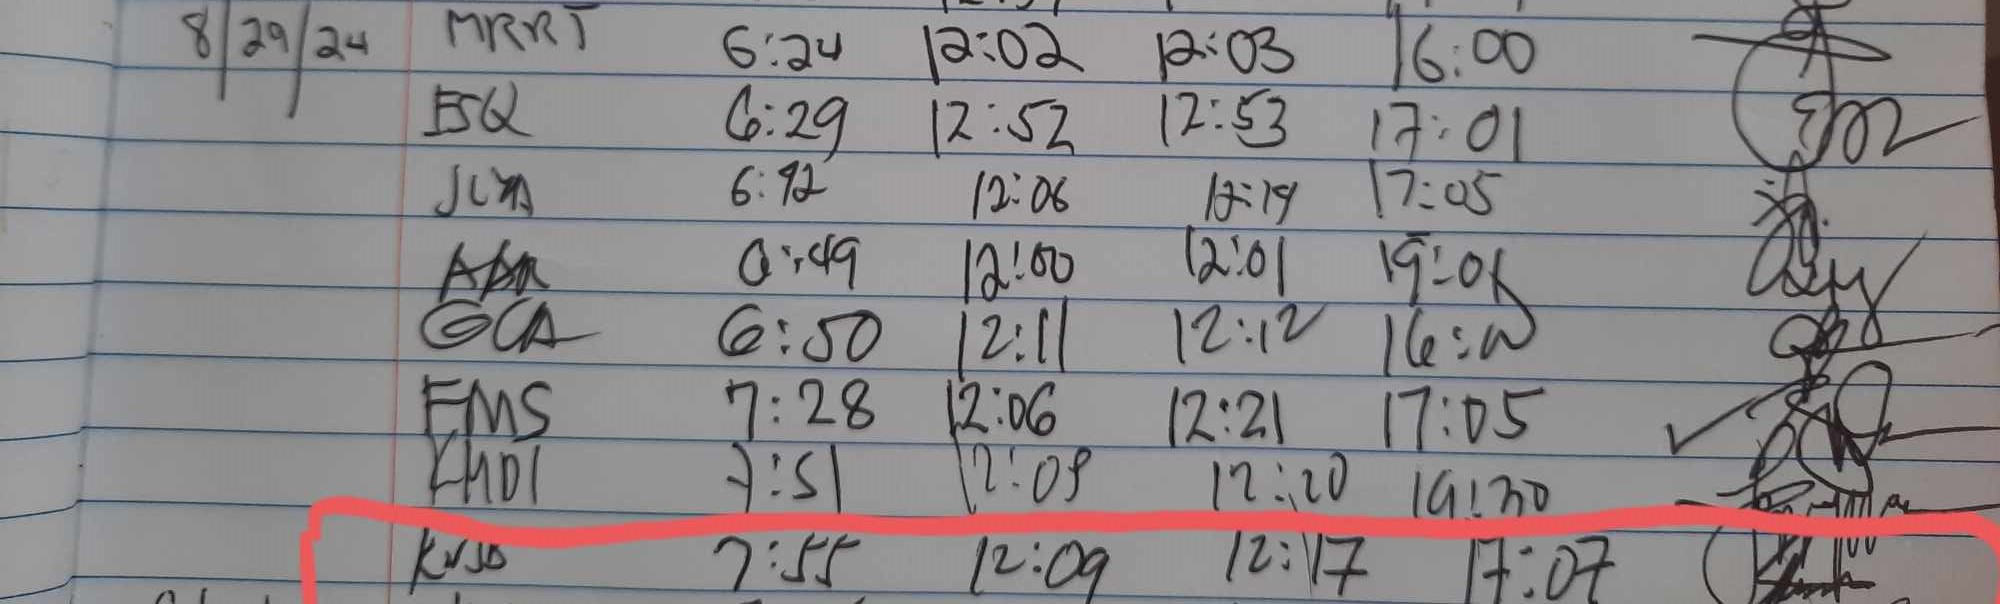 8/29/24 MRRT 6:24 12:02 12:03 16:00
ESQ 6:29 12:52 12:53 17:01
6:42 12:06 12:19 17:05
6:49 12:00 12:01 19:01
GCA 6:50 12:11 12:12
FMS 7:28 12:06 12:21 17:05
7:51 12:09 12:20 19:30
7:55 12:09 12:17 17:07